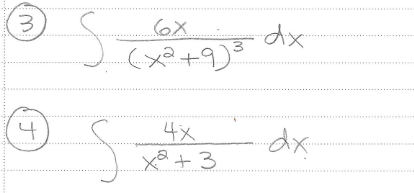 ③ ∫ 6x / (x² + 9)³ dx
④ ∫ 4x / (x² + 3) dx